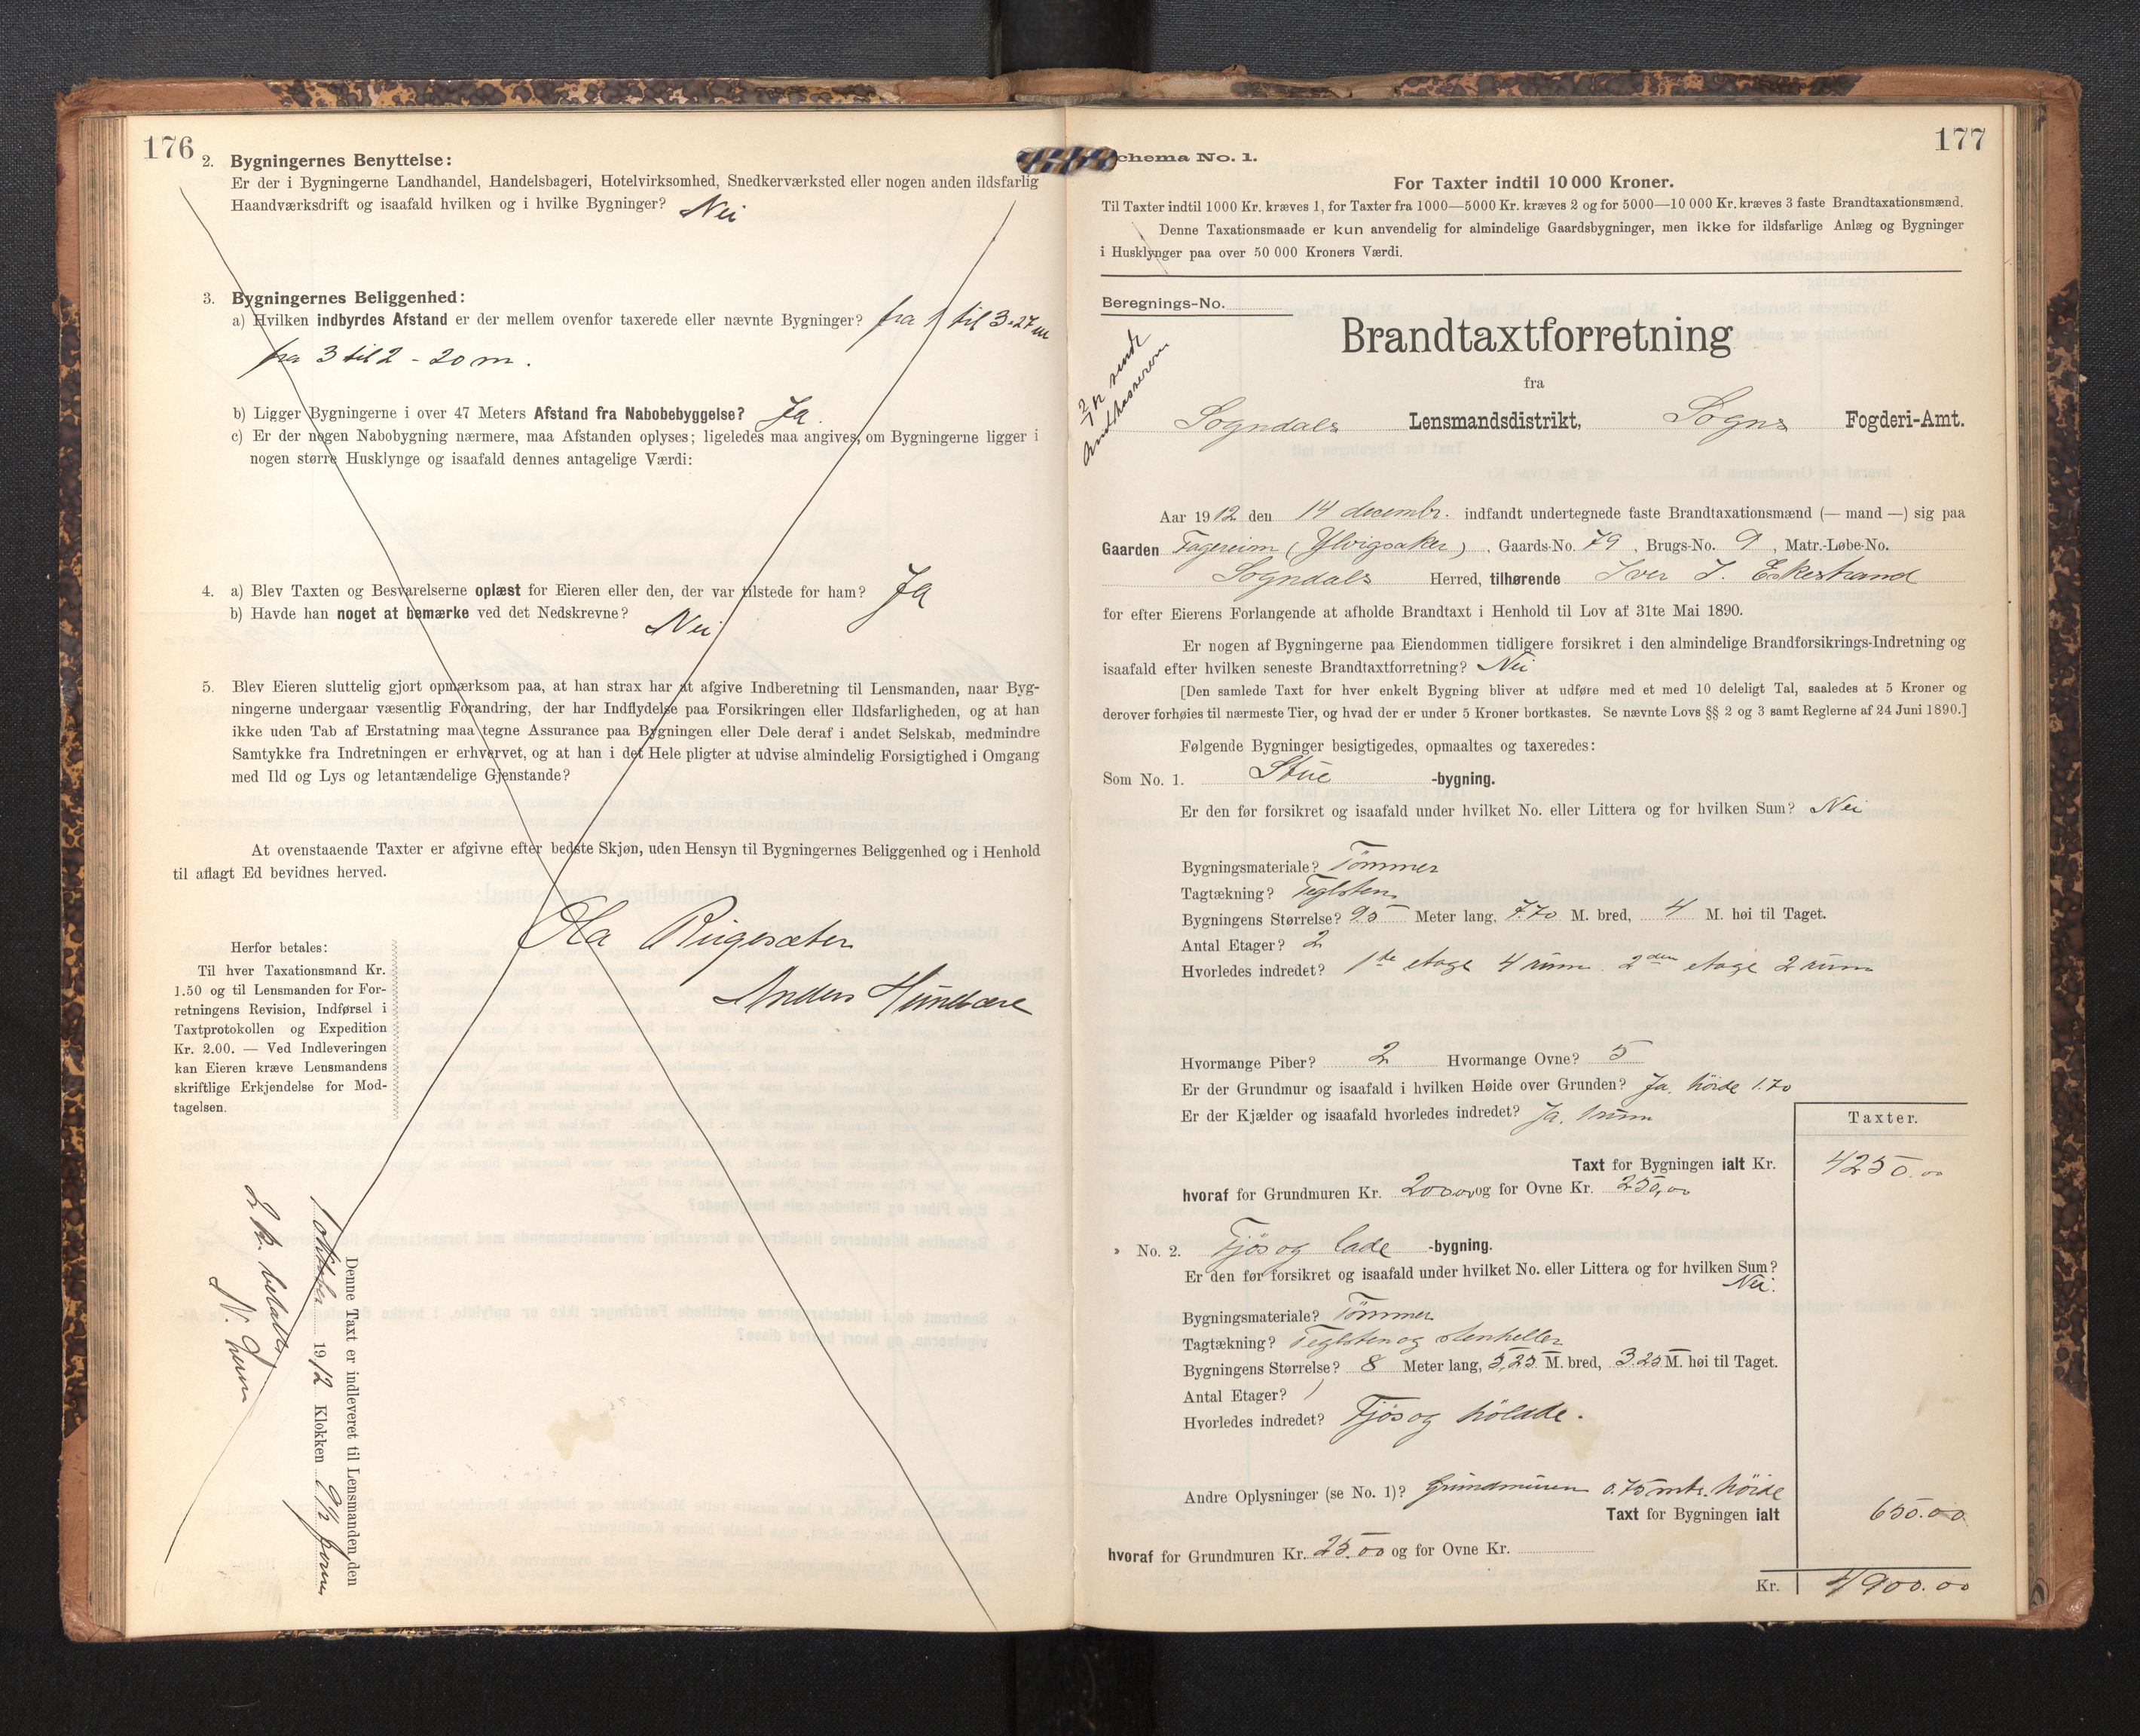 176
2. Bygningernes Benyttelse:
Er der i Bygningerne Landhandel, Handelsbageri, Hotelvirksomhed, Snedkerværksted eller nogen anden ildsfarlig
Haandværksdrift og isaafald hvilken og i hvilke Bygninger? Nei
3. Bygningernes Beliggenhed:
a) Hvilken indbyrdes Afstand er der mellem ovenfor taxerede eller nævnte Bygninger? fra 1 til 3-27 m
fra 3 til 2 - 20 m.
b) Ligger Bygningerne i over 47 Meters Afstand fra Nabobebyggelse? Ja.
c) Er der nogen Nabobygning nærmere, maa Afstanden oplyses; ligeledes maa angives, om Bygningerne ligger i
nogen større Husklynge og isaafald dennes antagelige Værdi:
4. a) Blev Taxten og Besvarelserne oplæst for Eieren eller den, der var tilstede for ham? Ja
b) Havde han noget at bemærke ved det Nedskrevne? Nei
5. Blev Eieren sluttelig gjort opmærksom paa, at han strax har at afgive Indberetning til Lensmanden, naar Byg-
ningerne undergaar væsentlig Forandring, der har Indflydelse paa Forsikringen eller Ildsfarligheden, og at han
ikke uden Tab af Erstatning maa tegne Assurance paa Bygningen eller Dele deraf i andet Selskab, medmindre
Samtykke fra Indretningen er erhvervet, og at han i det Hele pligter at udvise almindelig Forsigtighed i Omgang
med Ild og Lys og letantændelige Gjenstande?
At ovenstaaende Taxter er afgivne efter bedste Skjøn, uden Hensyn til Bygningernes Beliggenhed og i Henhold
til aflagt Ed bevidnes herved.
Ola
Anders
Herfor betales:
Til hver Taxationsmand Kr.
1.50 og til Lensmanden for For-
retningens Revision, Indførsel i
Taxtprotokollen og Expedition
Kr. 2.00. — Ved Indleveringen
kan Eieren kræve Lensmandens
skriftlige Erkjendelse for Mod-
tagelsen.
Denne Taxt er indleveret til Lensmanden den
1 oktober 1912 Klokken 9 1/2 form
2 kr. betalt
177
chema No. 1.
For Taxter indtil 10 000 Kroner.
Til Taxter indtil 1000 Kr. kræves 1, for Taxter fra 1000—5000 Kr. kræves 2 og for 5000—10 000 Kr. kræves 3 faste Brandtaxationsmænd.
Denne Taxationsmaade er kun anvendelig for almindelige Gaardsbygninger, men ikke for ildsfarlige Anlæg og Bygninger
i Husklynger paa over 50 000 Kroners Værdi.
Beregnings-No.
Brandtaxtforretning
fra
Sogndals Lensmandsdistrikt, Sogns Fogderi-Amt.
Aar 1912 den 14 decembr. indfandt undertegnede faste Brandtaxationsmænd (— mand —) sig paa
Gaarden Fagereim (Ylvisaker), Gaards-No. 79, Brugs-No. 9, Matr.-Løbe-No.
Sogndals Herred, tilhørende Iver J. Eskestrand
for efter Eierens Forlangende at afholde Brandtaxt i Henhold til Lov af 31te Mai 1890.
Er nogen af Bygningerne paa Eiendommen tidligere forsikret i den almindelige Brandforsikrings-Indretning og
isaafald efter hvilken seneste Brandtaxtforretning? Nei
[Den samlede Taxt for hver enkelt Bygning bliver at udføre med et med 10 deleligt Tal, saaledes at 5 Kroner og
derover forhøies til nærmeste Tier, og hvad der er under 5 Kroner bortkastes. Se nævnte Lovs §§ 2 og 3 samt Reglerne af 24 Juni 1890.]
Følgende Bygninger besigtigedes, opmaaltes og taxeredes:
Som No. 1. Stue -bygning.
Er den før forsikret og isaafald under hvilket No. eller Littera og for hvilken Sum? Nei
Bygningsmateriale? Tömmer
Tagtækning? Teglsten
Bygningens Størrelse? 9.5 Meter lang, 7.70 M. bred, 4 M. høi til Taget.
Antal Etager? 2
Hvorledes indredet? 1ste etage 4 rum. 2den etage 2 rum
Hvormange Piber? 2 Hvormange Ovne? 5
Er der Grundmur og isaafald i hvilken Høide over Grunden? Ja, höide 1.70
Er der Kjælder og isaafald hvorledes indredet? Ja. 1 rum
Taxter.
Taxt for Bygningen ialt Kr. 4250.00
hvoraf for Grundmuren Kr. 200.00 og for Ovne Kr. 250,00
No. 2. Fjös og lade -bygning.
Er den før forsikret og isaafald under hvilket No. eller Littera og for hvilken Sum?
Nei.
Bygningsmateriale? Tömmer
Tagtækning? Teglsten og stenheller
Bygningens Størrelse? 8 Meter lang, 5,25 M. bred, 3.25 M. høi til Taget.
Antal Etager? 1
Hvorledes indredet? Fjös og hölade.
Andre Oplysninger (se No. 1)? Grundmuren 0.75 mtr. höide
Taxt for Bygningen ialt 650.00
hvoraf for Grundmuren Kr. 25.00 og for Ovne Kr.
Kr. 4900.00